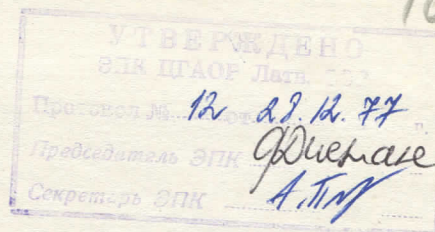 УТВЕРЖДЕНО
ЭПК ЦГАОР Латв. ССР
Протокол № 12 от 28.12.77 г.
Председатель ЭПК
Секретарь ЭПК